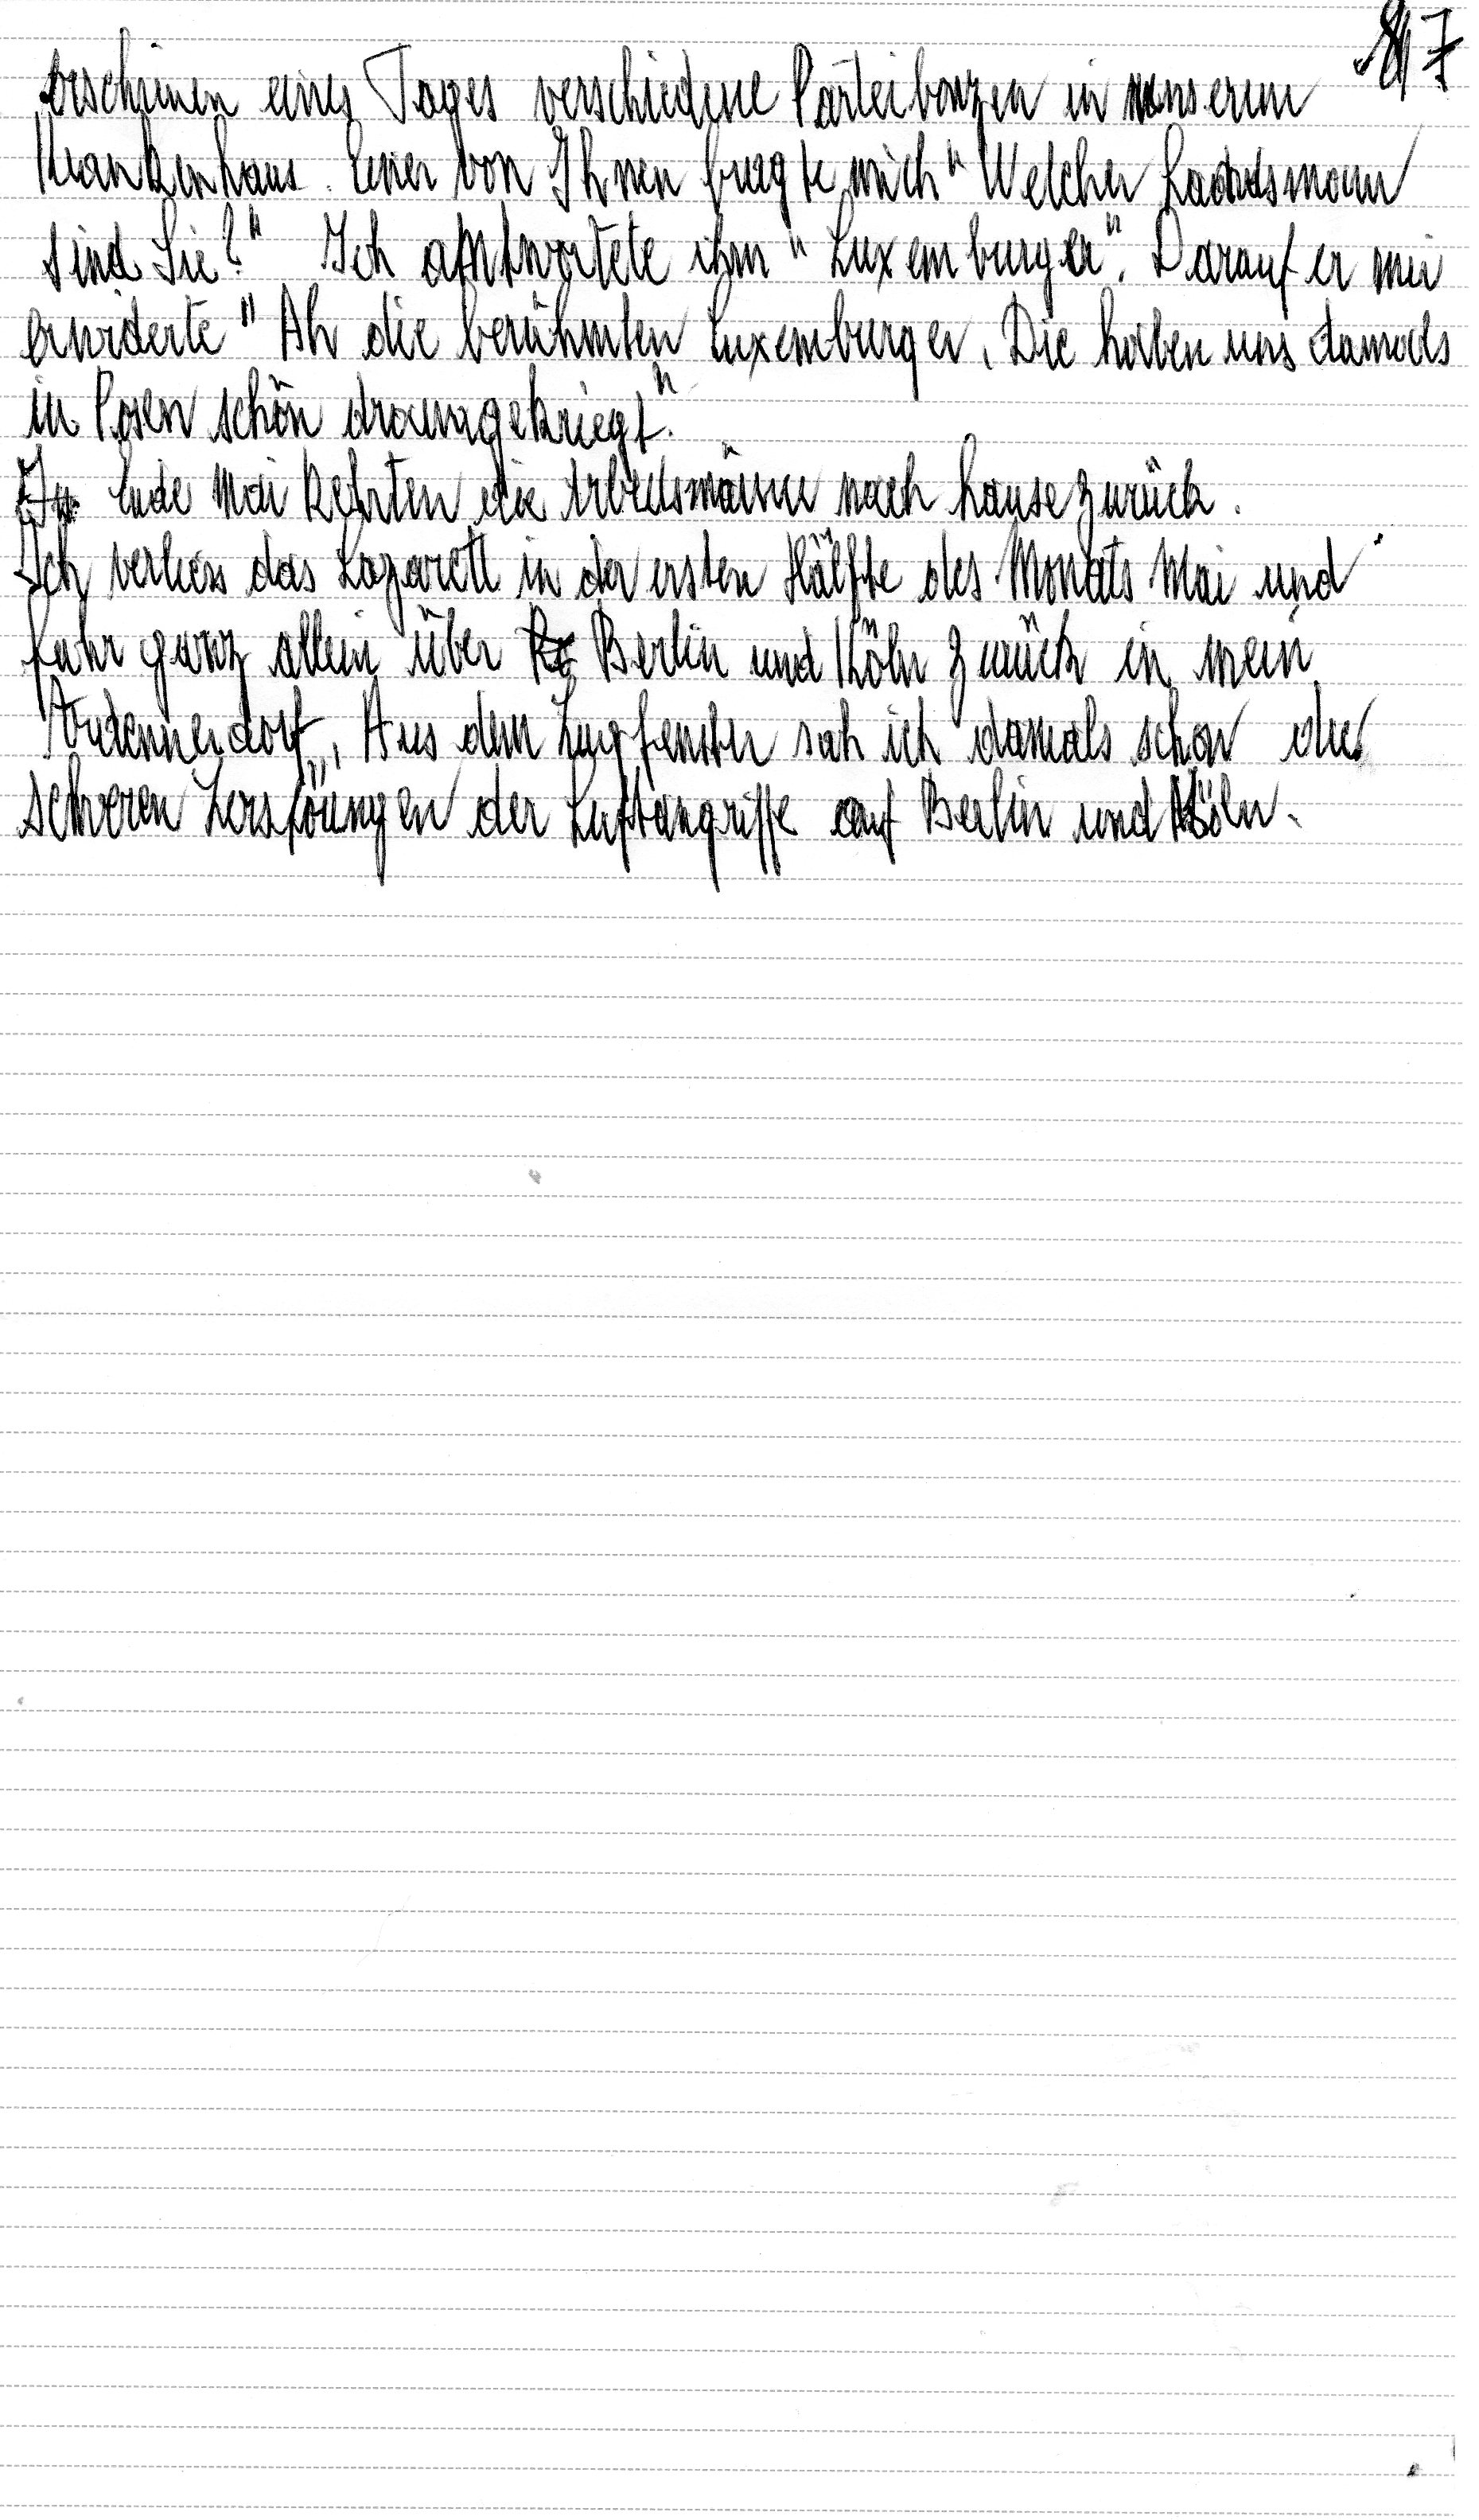 7
erschienen eines Tages verschiedene Parteibonzen in unserem
Krankenhaus. Einer von Ihnen fragte mich "Welcher Landsmann
sind Sie?" Ich antwortete ihm "Luxemburger". Darauf er mir
erwiderte "Ah die berühmten Luxemburger. Die haben uns damals
in Posen schön drangekriegt."
Ende Mai kehrten die Arbeitsmänner nach hause zurück.
Ich verliess das Lazarett in der ersten Hälfte des Monats Mai und
fuhr ganz allein über Berlin und Köln zurück in mein
Ardennendorf. Aus dem Zugfenster sah ich damals schon die
schweren Zerstörungen der Luftangriffe auf Berlin und Köln.